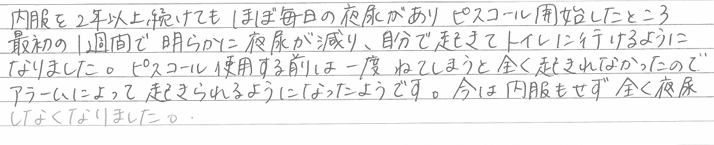 内服を2年以上続けてもほぼ毎日の夜尿があり ピスコール開始したところ
最初の1週間で明らかに夜尿が減り、自分で起きてトイレに行けるように
なりました。ピスコール使用する前は一度ねてしまうと全く起きれなかったので
アラームによって起きられるようになったようです。今は内服もせず全く夜尿
しなくなりました。